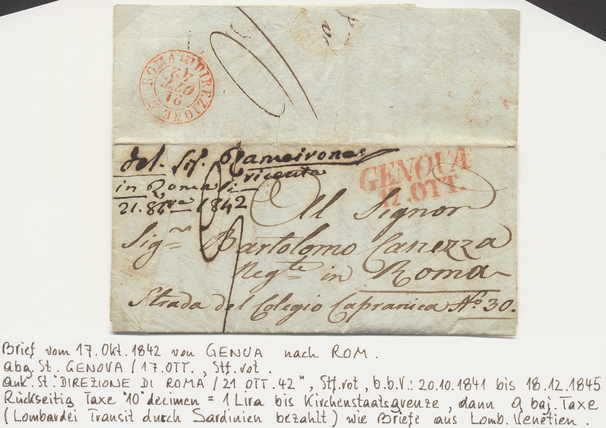 ROMA DIREZIONE
21
OTT
42
del Sig. Rameirone
ricevuta
in Roma li
21. 8bre 1842
GENOVA
17. OTT.
Al Signor
Sig.re Bartolomo Canezza
Neg.te in Roma
Strada del Colegio Capranica No. 30.
Brief vom 17. Okt. 1842 von GENUA nach ROM.
abg. St. GENOVA / 17. OTT., Stf. rot.
ank. St. "DIREZIONE DI ROMA / 21 OTT. 42", Stf. rot, b.b.V.: 20.10.1841 bis 18.12.1845
Rückseitig Taxe "10" decimen = 1 Lira bis Kirchenstaatsgrenze, dann 9 baj. Taxe
(Lombardei Transit durch Sardinien bezahlt) wie Briefe aus Lomb. Venetien.